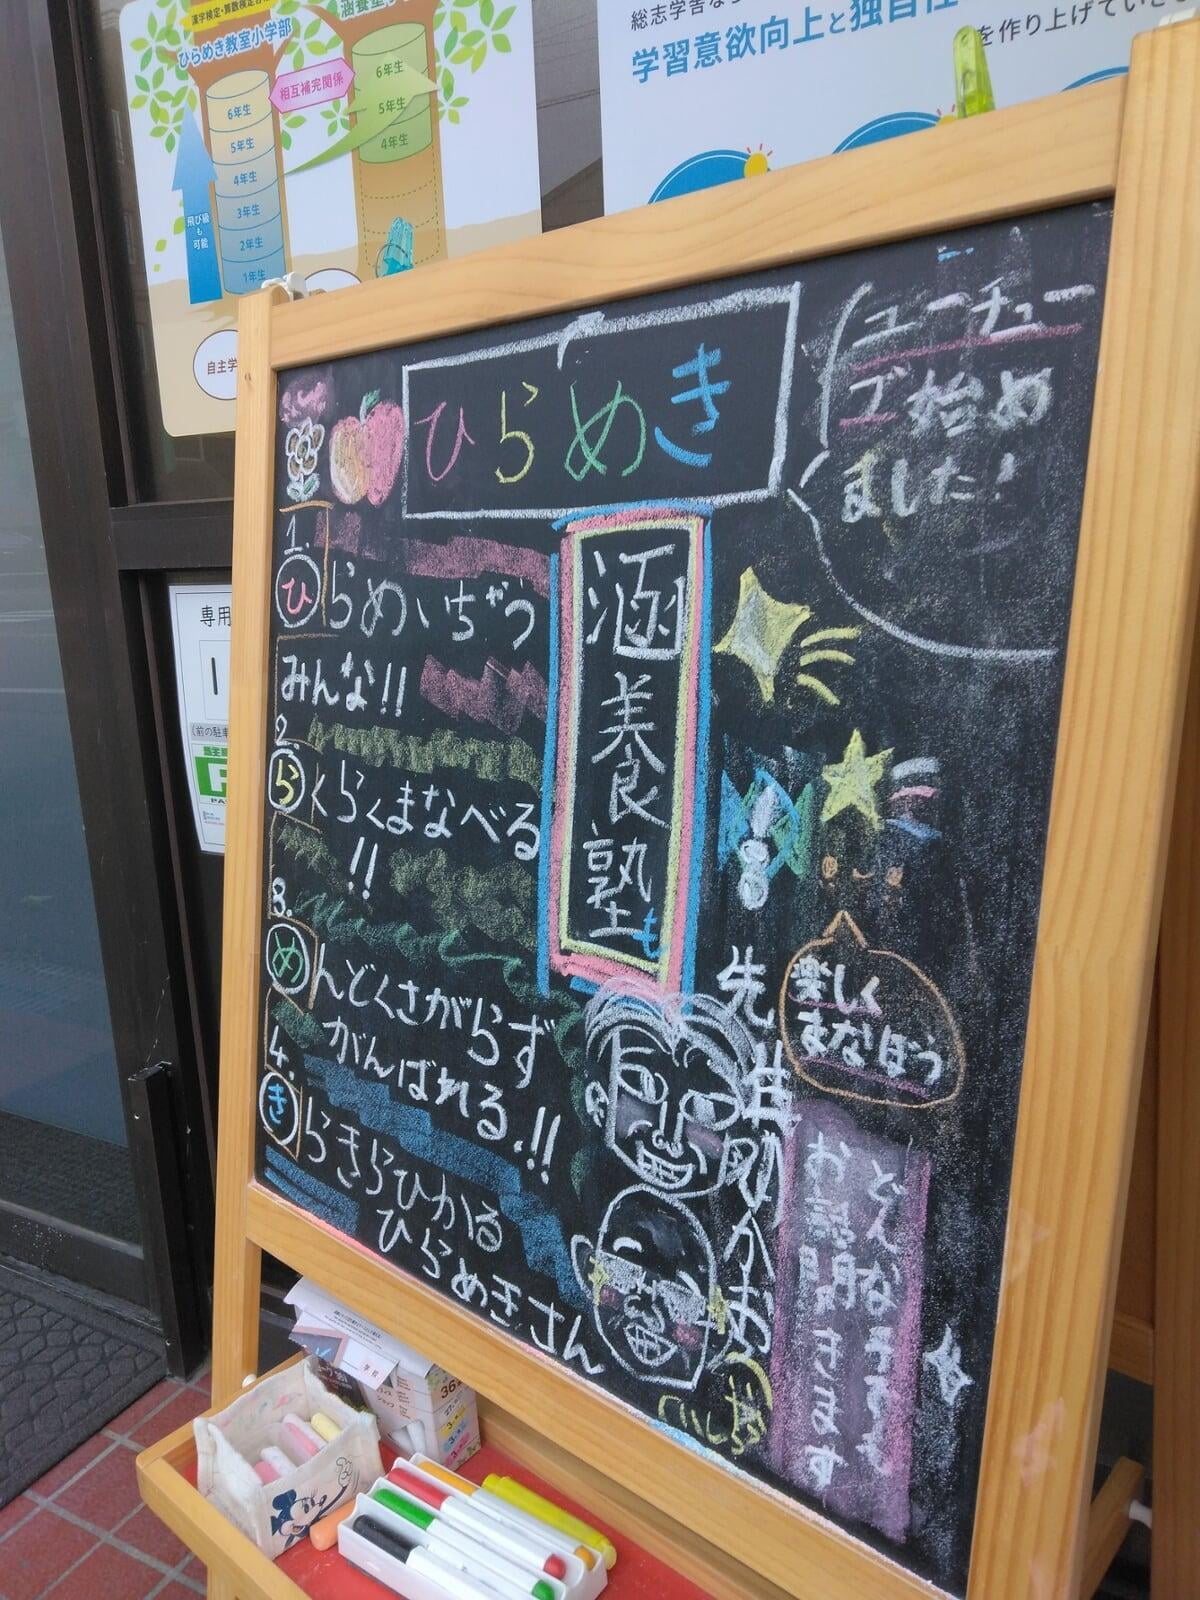 漢字検定・算数検定
ひらめき教室小学部
6年生
5年生
4年生
3年生
2年生
1年生
飛び級
も
可能
相互補完関係
6年生
5年生
4年生
自主学
総志学舎な
学習意欲向上と独自性
を作り上げていき
専用
(前の駐車
ひらめき
ユーチュー
ブ始め
ました!
1.
ひらめいちゃう
みんな!!
2.
らくらくまなべる
!!
3.
めんどくさがらず
がんばれる!!
4.
きらきらひかる
ひらめきさん
涵養塾も
楽しく
まなぼう
どんな子でも
お勉強できます
学校